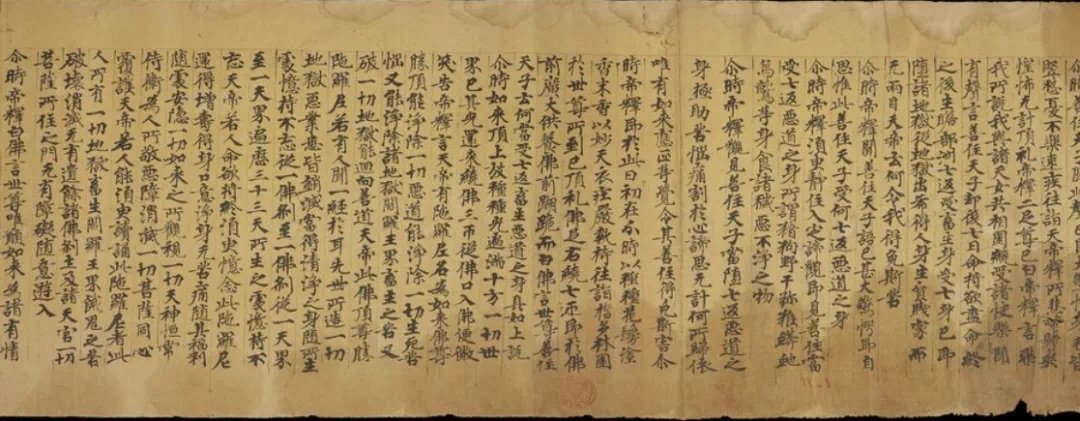 竪愁憂不樂速疾往詣天帝釋所悲啼歸哭
惶怖无計頂礼帝釋二足尊已白帝釋言聽
我所說我與諸天女共相圍繞受諸快樂聞
有聲言善住天子却後七日命將欲盡命終
之後生贍部洲七返受畜生身受七身已即
墮諸地獄從地獄出希得人身生貧賤家而
无兩目天帝云何令我得免斯苦
尒時帝釋聞善住天子語已甚大驚愕即自
思惟此善住天子受何七返惡道之身
尒時帝釋須臾靜住入定諦觀即見善住當
受七返惡道之身所謂猪狗野干獼猴蛇
烏鷲等身食諸穢惡不淨之物
尒時帝釋觀見善住天子當墮七返惡道之
身極助苦惱痛割於心諦思无計何所歸依
唯有如來應正等覺令其善住得免斯苦尒
時帝釋即於此日初夜分時以種種花鬘塗
香末香以妙天衣莊嚴執持往詣誓多林園
於世尊所至已頂礼佛足右繞七帀即於佛
前廣大供養佛前䠒跪而白佛言世尊善住
天子云何當受七返畜生惡道之身具如上說
尒時如來頂上放種種光遍滿十方一切世
界已其光還來繞佛三帀從佛口入佛便微
笑告帝釋言天帝有陁羅尼名為如來佛尊
勝頂能淨除一切惡道能淨除一切生死苦
惱又能淨除諸地獄閻羅王界畜生之苦又
破一切地獄能迴向善道天帝此佛頂尊勝
陁羅尼若有人聞一經於耳先世所造一切
地獄惡業悉皆銷滅當得清淨之身隨所生
處憶持不忘從一佛剎至一佛剎從一天界
至一天界遍歷三十三天所生之處憶持不
忘天帝若人命欲將終須臾憶念此陁羅尼
還得增壽得身口意淨身无苦痛隨其福利
隨處安隱一切如來之所觀視一切天神恒常
侍衛為人所敬惡障消滅一切菩薩同心
覆護天帝若人能須臾讀誦此陁羅尼者此
人所有一切地獄畜生閻羅王界餓鬼之苦
破壞消滅无有遺餘諸佛剎土及諸天宮一切
菩薩所住之門无有障礙隨意遊入
尒時帝釋白佛言世尊唯願如來為諸有情